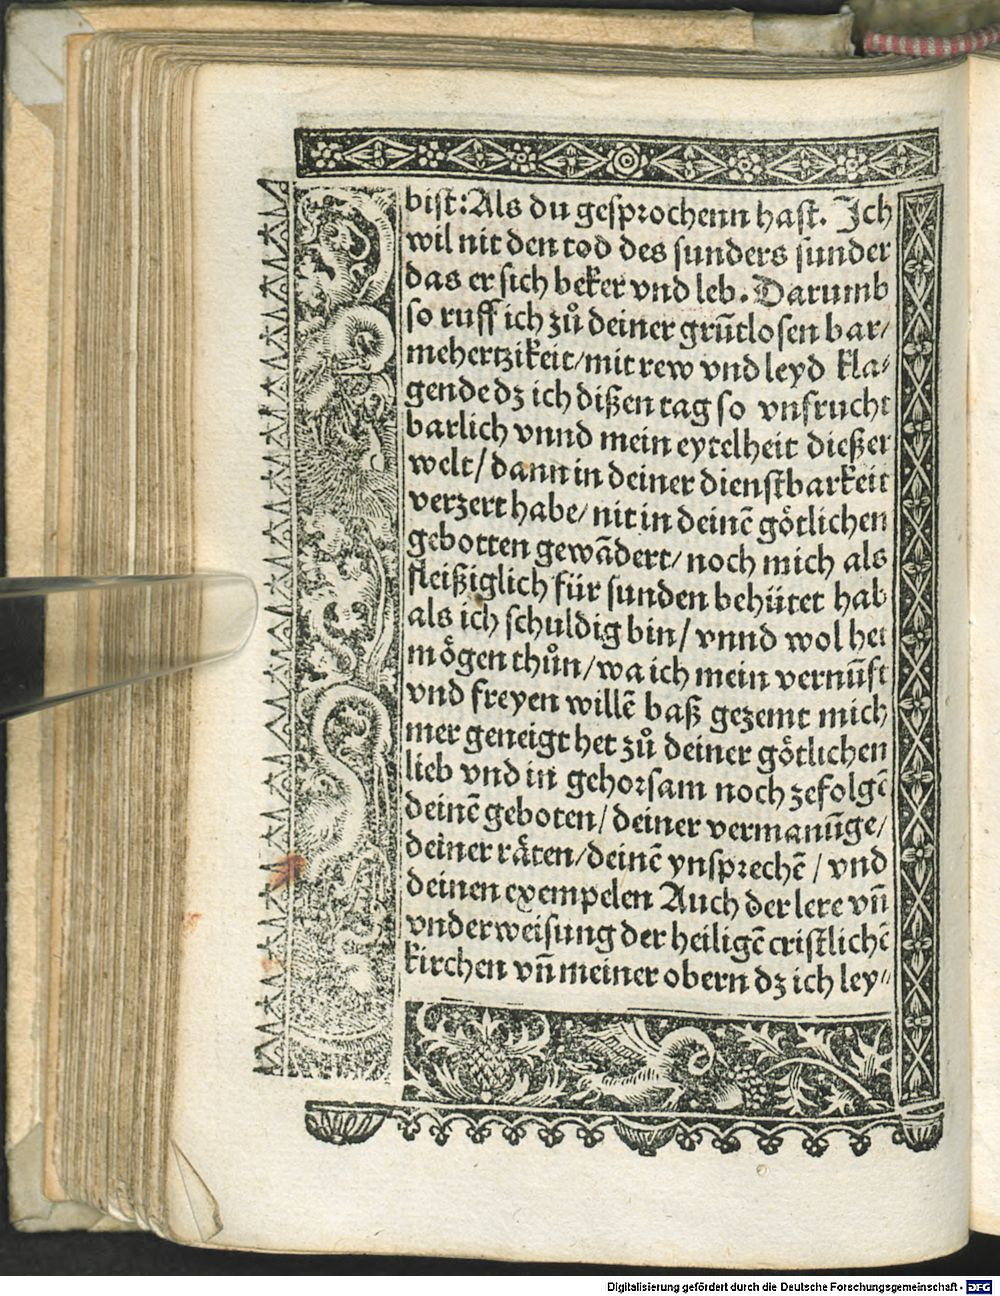 bist: Als du gesprochenn hast. Ich
wil nit den tod des sunders sunder
das er sich beker vnd leb. Darumb
so ruff ich zů deiner grūtlosen bar/
mehertzikeit/ mit rew vnd leyd kla⸗
gende dz ich dißen tag so vnfrucht
barlich vnnd mein eytelheit dießer
welt/ dann in deiner dienstbarkeit
verzert habe/ nit in deinē götlichen
gebotten gewādert/ noch mich als
fleißiglich für sunden behütet hab
als ich schuldig bin/ vnnd wol het
mögen thůn/ wa ich mein vernūft
vnd freyen willē baß gezemt mich
mer geneigt het zů deiner götlichen
lieb vnd in gehorsam noch zefolgē
deinē geboten/ deiner vermanūge/
deiner räten/ deinē ynsprechē / vnd
deinen exempelen Auch der lere vn̄
vnderweisung der heiligē cristlichē
kirchen vn̄ meiner obern dz ich ley⸗
Digitalisierung gefördert durch die Deutsche Forschungsgemeinschaft - DFG